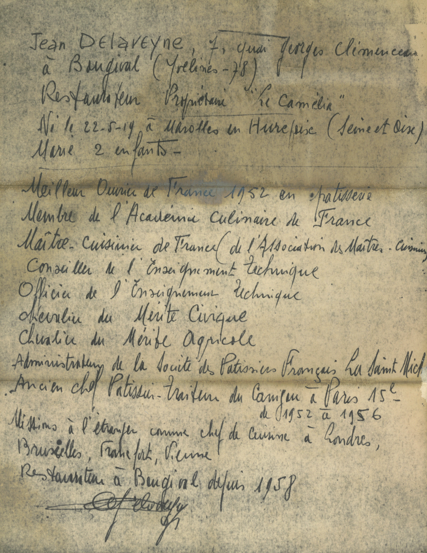 Jean DELAVEYNE, 7, quai Georges Clemenceau
à Bougival (Yvelines-78)
Restaurateur Propriétaire "Le Camélia"
Né le 22-5-19, à Marolles en Hurepoix (Seine et Oise)
Marié 2 enfants -
Meilleur Ouvrier de France 1952 en patisserie
Membre de l'Académie Culinaire de France
Maître-Cuisinier de France (de l'Association des Maîtres-Cuisiniers
Conseiller de l'Enseignement technique
Officier de l'Enseignement Technique
Chevalier du Mérite Civique
Chevalier du Mérite Agricole
Administrateur de la Société des Patissiers Français La Saint Michel
Ancien chef Patissier-Traiteur du à Paris 15e
de 1952 à 1956
Missions à l'étranger comme chef de cuisine à Londres,
Bruxelles, Francfort, Vienne
Restaurateur à Bougival depuis 1958